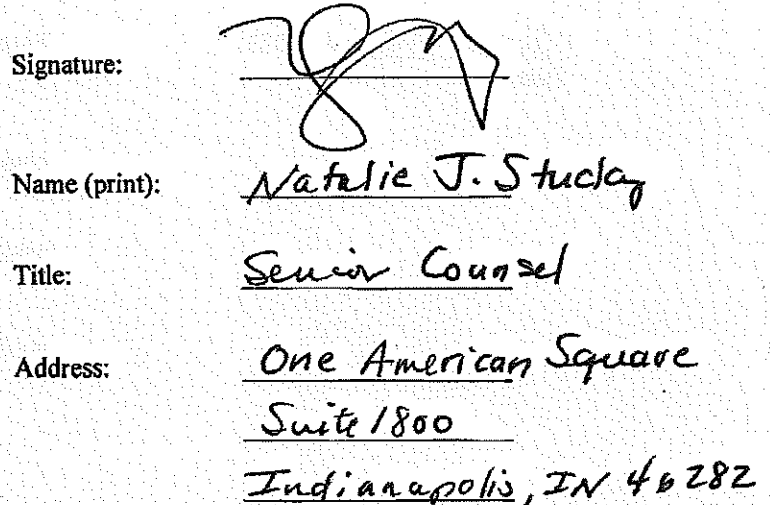 Signature:
Name (print): Natalie J. Stuckey
Title: Senior Counsel
Address: One American Square
Suite 1800
Indianapolis, IN 46282